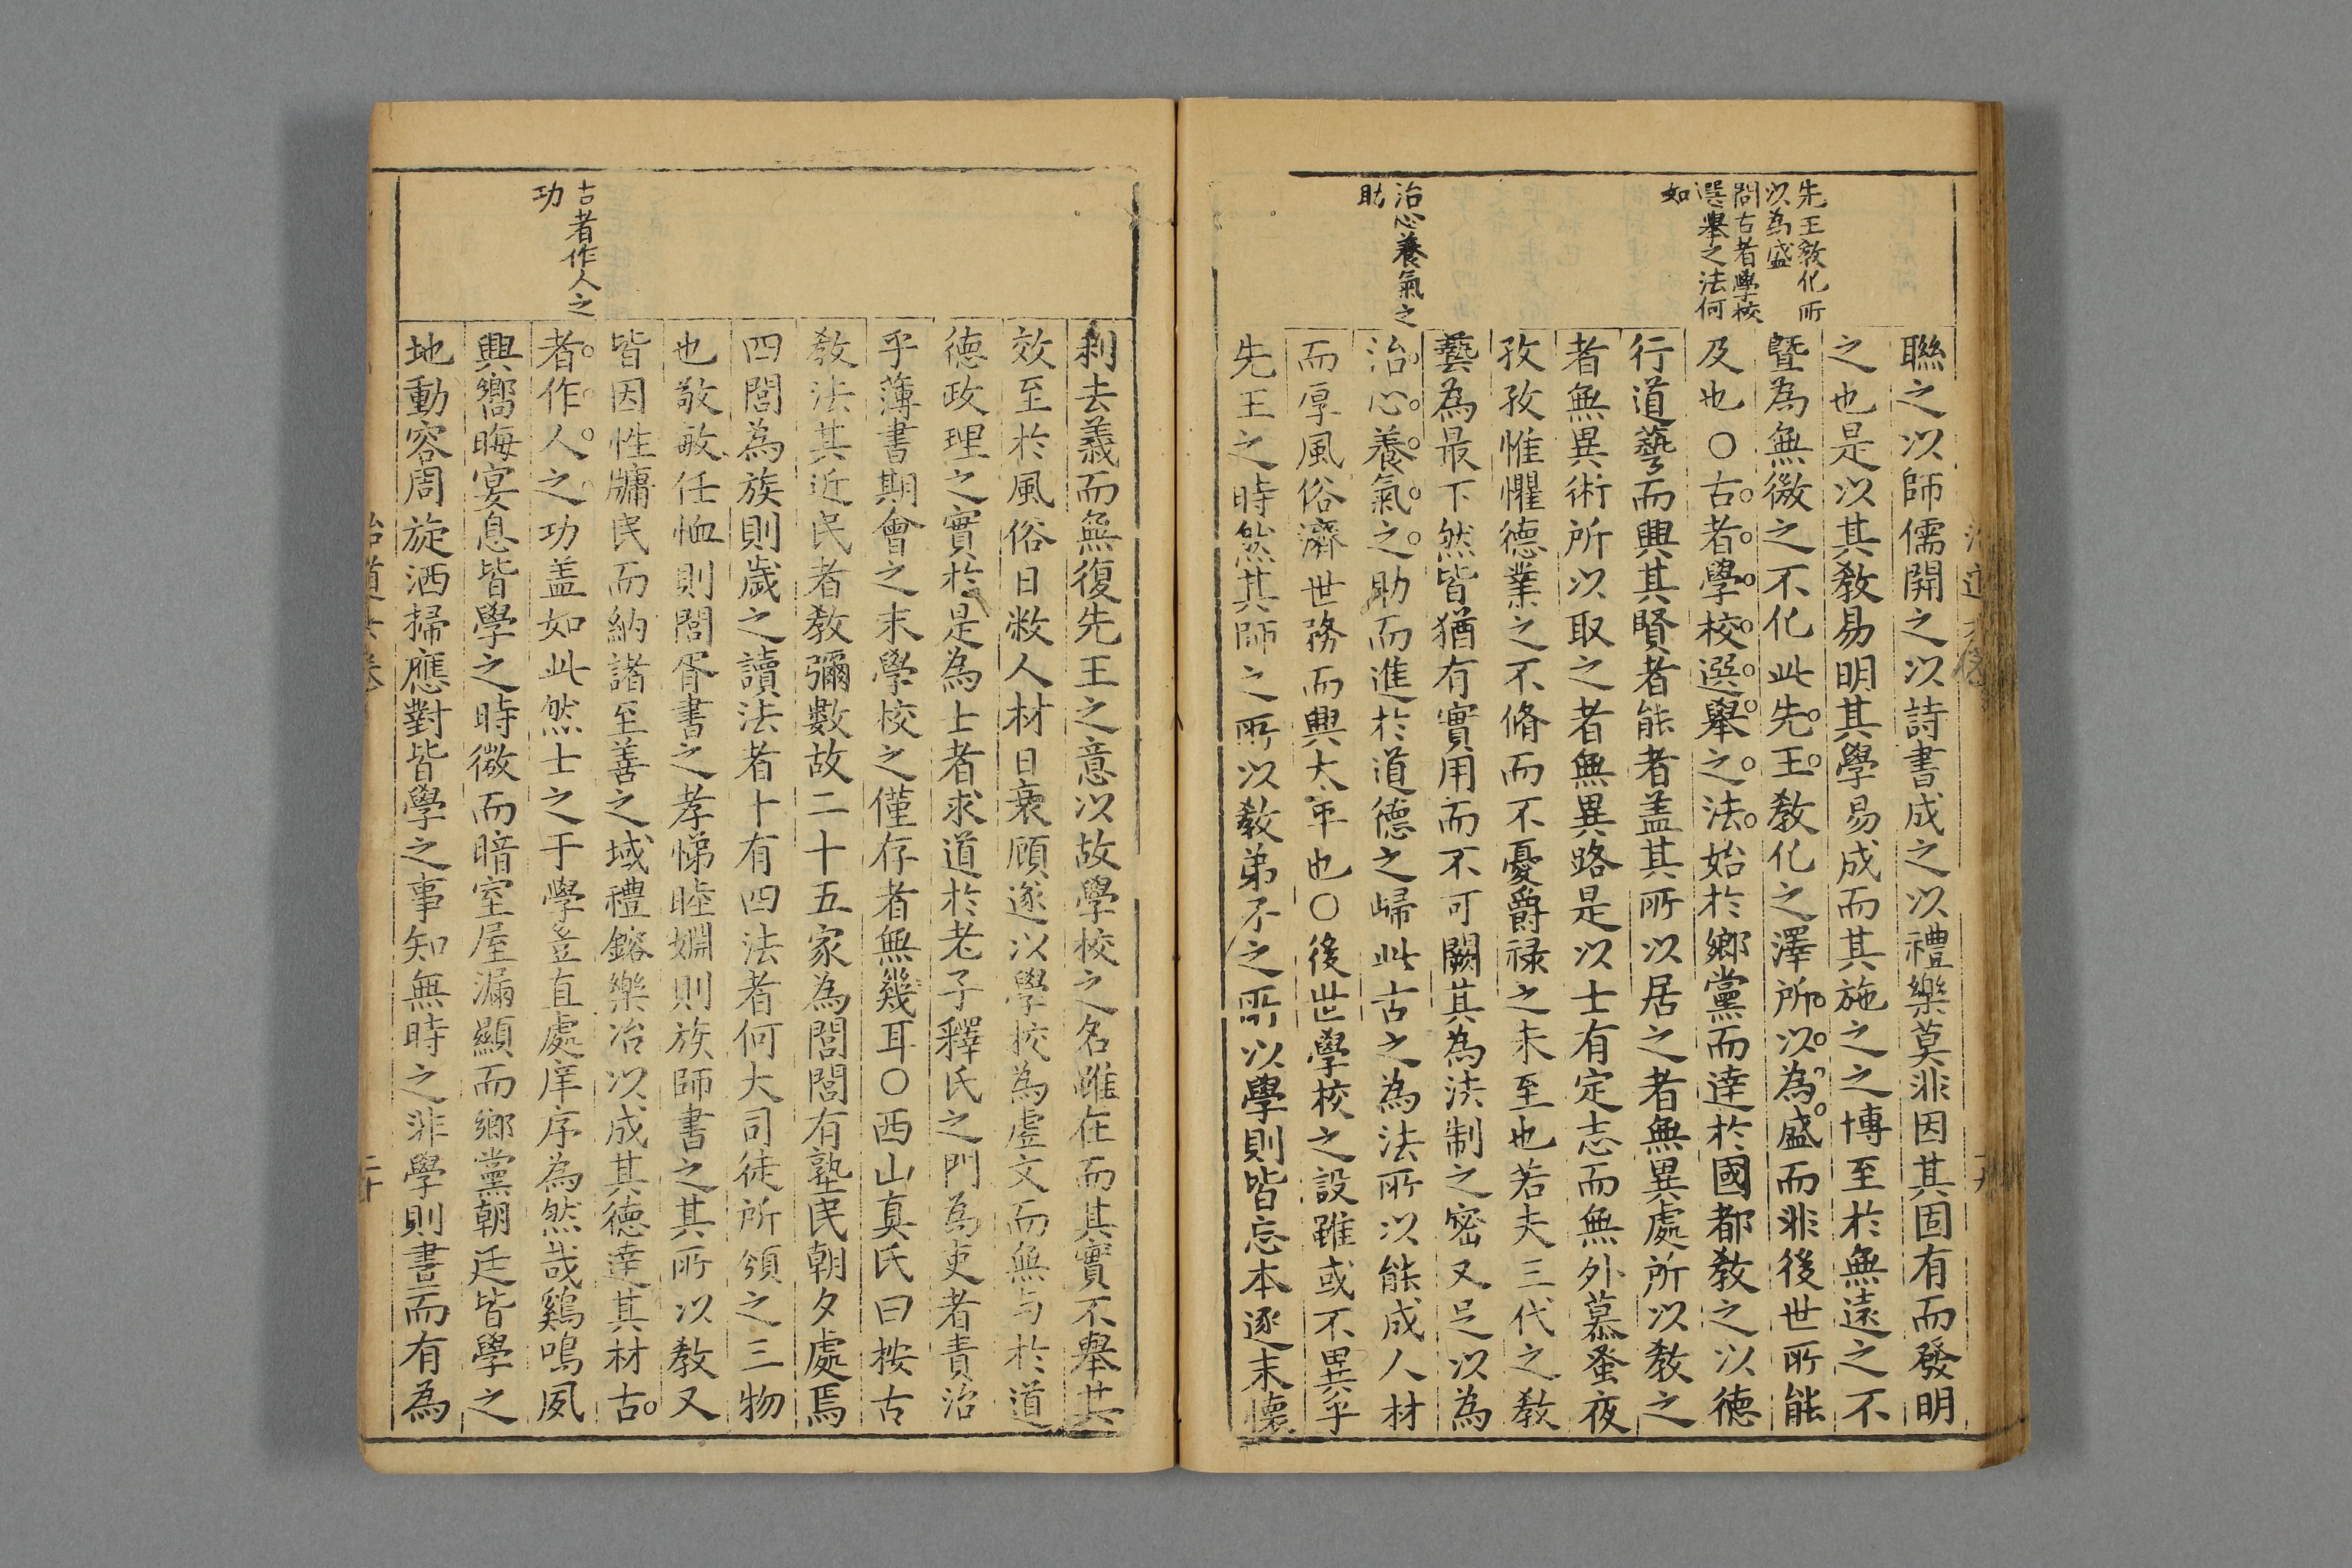 先王敎化所
以為盛
問古者學校
選舉之法何
如
治心養氣之
助
聯之以師儒開之以詩書成之以禮樂莫非因其固有而發明
之也是以其敎易明其學易成而其施之之博至於無遠之不
曁為無微之不化此先王敎化之澤所以為盛而非後世所能
及也○古者學校選舉之法始於鄉黨而達於國都敎之以德
行道藝而興其賢者能者盖其所以居之者無異處所以敎之
者無異術所以取之者無異路是以士有定志而無外慕蚤夜
孜孜惟懼德業之不脩而不憂爵禄之未至也若夫三代之敎
藝為最下然皆猶有實用而不可闕其為法制之密又足以為
治心養氣之助而進於道德之歸此古之為法所以能成人材
而厚風俗濟世務而興太平也○後世學校之設雖或不異乎
先王之時然其師之所以敎弟子之所以學則皆忘本逐末懷
古者作人之
功
利去義而無復先王之意以故學校之名雖在而其實不舉其
效至於風俗日敝人材日衰顧遂以學校為虛文而無与於道
德政理之實於是為士者求道於老子釋氏之門為吏者責治
乎薄書期會之末學校之僅存者無幾耳○西山真氏曰按古
敎法其近民者敎彌數故二十五家為閭閭有塾民朝夕處焉
四閭為族則歲之讀法者十有四法者何大司徒所頒之三物
也敬敏任恤則閭胥書之孝悌睦婣則族師書之其所以敎又
皆因性牖民而納諸至善之域禮鎔樂冶以成其德達其材古
者作人之功盖如此然士之于學豈直處庠序為然哉鷄鳴夙
興嚮晦宴息皆學之時微而暗室屋漏顯而鄉黨朝廷皆學之
地動容周旋洒掃應對皆學之事知無時之非學則晝而有為